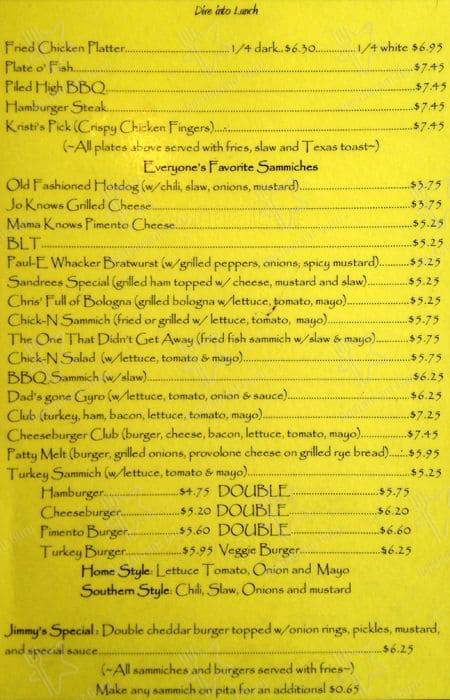 Dive into Lunch
Fried Chicken Platter..............................1/4 dark..$6.30...............1/4 white $6.95
Plate o' Fish...............$7.45
Piled High BBQ...............$7.45
Hamburger Steak...............$7.45
Kristi's Pick (Crispy Chicken Fingers)...............$7.45
(~All plates above served with fries, slaw and Texas toast~)
Everyone's Favorite Sammiches
Old Fashioned Hotdog (w/chili, slaw, onions, mustard)...............$3.75
Jo Knows Grilled Cheese...............$3.75
Mama Knows Pimento Cheese...............$5.25
BLT...............$5.25
Paul-E Whacker Bratwurst (w/grilled peppers, onions, spicy mustard)...............$5.25
Sandrees Special (grilled ham topped w/ cheese, mustard and slaw)...............$5.25
Chris' Full of Bologna (grilled bologna w/lettuce, tomato, mayo)...............$5.25
Chick-N Sammich (fried or grilled w/ lettuce, tomato, mayo)...............$5.75
The One That Didn't Get Away (fried fish sammich w/slaw & mayo)...............$5.75
Chick-N Salad (w/lettuce, tomato & mayo)...............$5.75
BBQ Sammich (w/slaw)...............$6.25
Dad's gone Gyro (w/lettuce, tomato, onion & sauce)...............$6.25
Club (turkey, ham, bacon, lettuce, tomato, mayo)...............$7.25
Cheeseburger Club (burger, cheese, bacon, lettuce, tomato, mayo)...............$7.45
Patty Melt (burger, grilled onions, provolone cheese on grilled rye bread)......$5.95
Turkey Sammich (w/lettuce, tomato & mayo)...............$5.25
Hamburger...............$4.75 DOUBLE...............$5.75
Cheeseburger...............$5.20 DOUBLE...............$6.20
Pimento Burger...............$5.60 DOUBLE...............$6.60
Turkey Burger...............$5.95 Veggie Burger...............$6.25
Home Style: Lettuce Tomato, Onion and Mayo
Southern Style: Chili, Slaw, Onions and mustard
Jimmy's Special: Double cheddar burger topped w/onion rings, pickles, mustard,
and special sauce...............$6.25
(~All sammiches and burgers served with fries~)
Make any sammich on pita for an additional $0.65